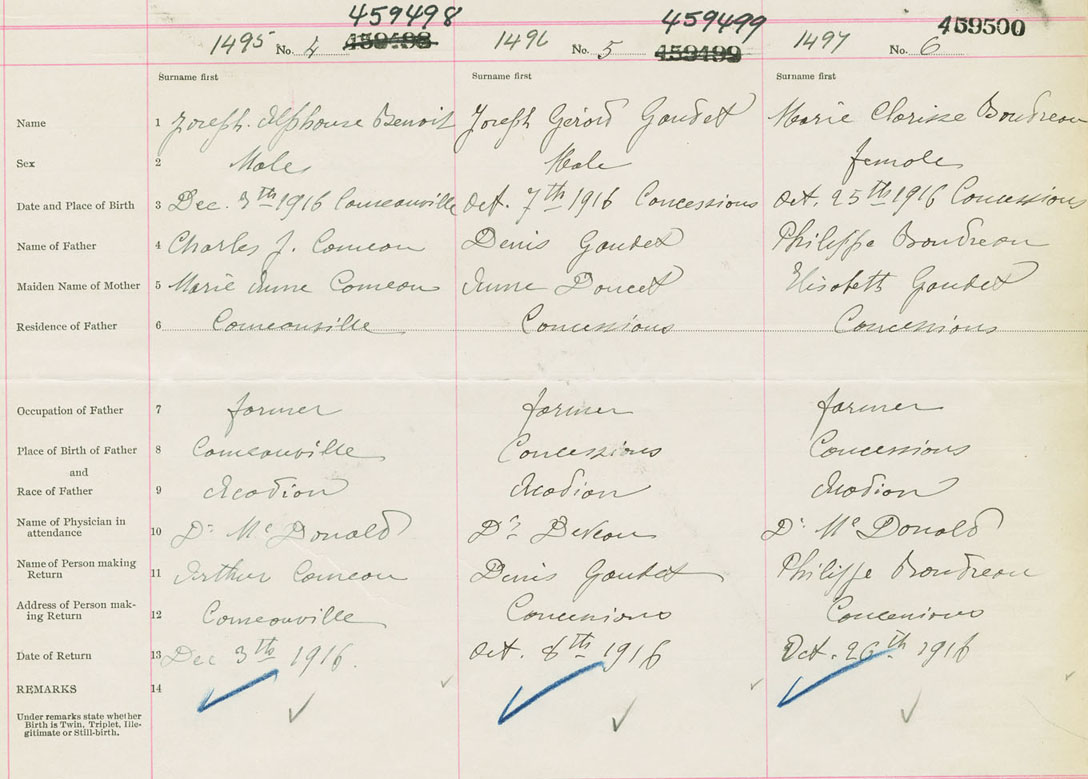 459498 459499 459500
1495 No. 4 459498 1496 No. 5 459499 1497 No. 6
Surname first Surname first Surname first
Name 1 Joseph Alphonse Benoit Joseph Gérard Gaudet Marie Clarisse Boudreau
Sex 2 Male Male female
Date and Place of Birth 3 Dec. 3th 1916 Comeauville Oct. 7th 1916 Concessions Oct. 25th 1916 Concessions
Name of Father 4 Charles J. Comeau Denis Gaudet Philippe Boudreau
Maiden Name of Mother 5 Marie Anne Comeau Anne Doucet Elisabeth Gaudet
Residence of Father 6 Comeauville Concessions Concessions
Occupation of Father 7 farmer farmer farmer
Place of Birth of Father 8 Comeauville Concessions Concessions
and
Race of Father 9 Acadian Acadian Acadian
Name of Physician in
attendance 10 Dr McDonald Dr DeVeau Dr McDonald
Name of Person making
Return 11 Arthur Comeau Denis Gaudet Philippe Boudreau
Address of Person mak-
ing Return 12 Comeauville Concessions Concessions
Date of Return 13 Dec 3th 1916. Oct. 8th 1916 Oct. 26th 1916
REMARKS 14
Under remarks state whether
Birth is Twin, Triplet, Ille-
gitimate or Still-birth.